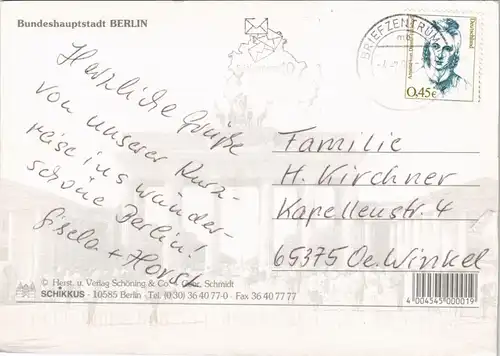 Bundeshauptstadt BERLIN
Herzliche Grüße
von unserer Kurz-
reise ins wunder-
schöne Berlin!
Gisela + Horst
BRIEFZENTRUM
mb
Deutschland
0,45€
Familie
H. Kirchner
Kapellenstr. 4
65375 Oe. Winkel
© Herst. u. Verlag Schöning & Co + Gebr. Schmidt
SCHIKKUS · 10585 Berlin · Tel. (030) 36 40 77-0 · Fax 36 40 77 77
4 004545 000019